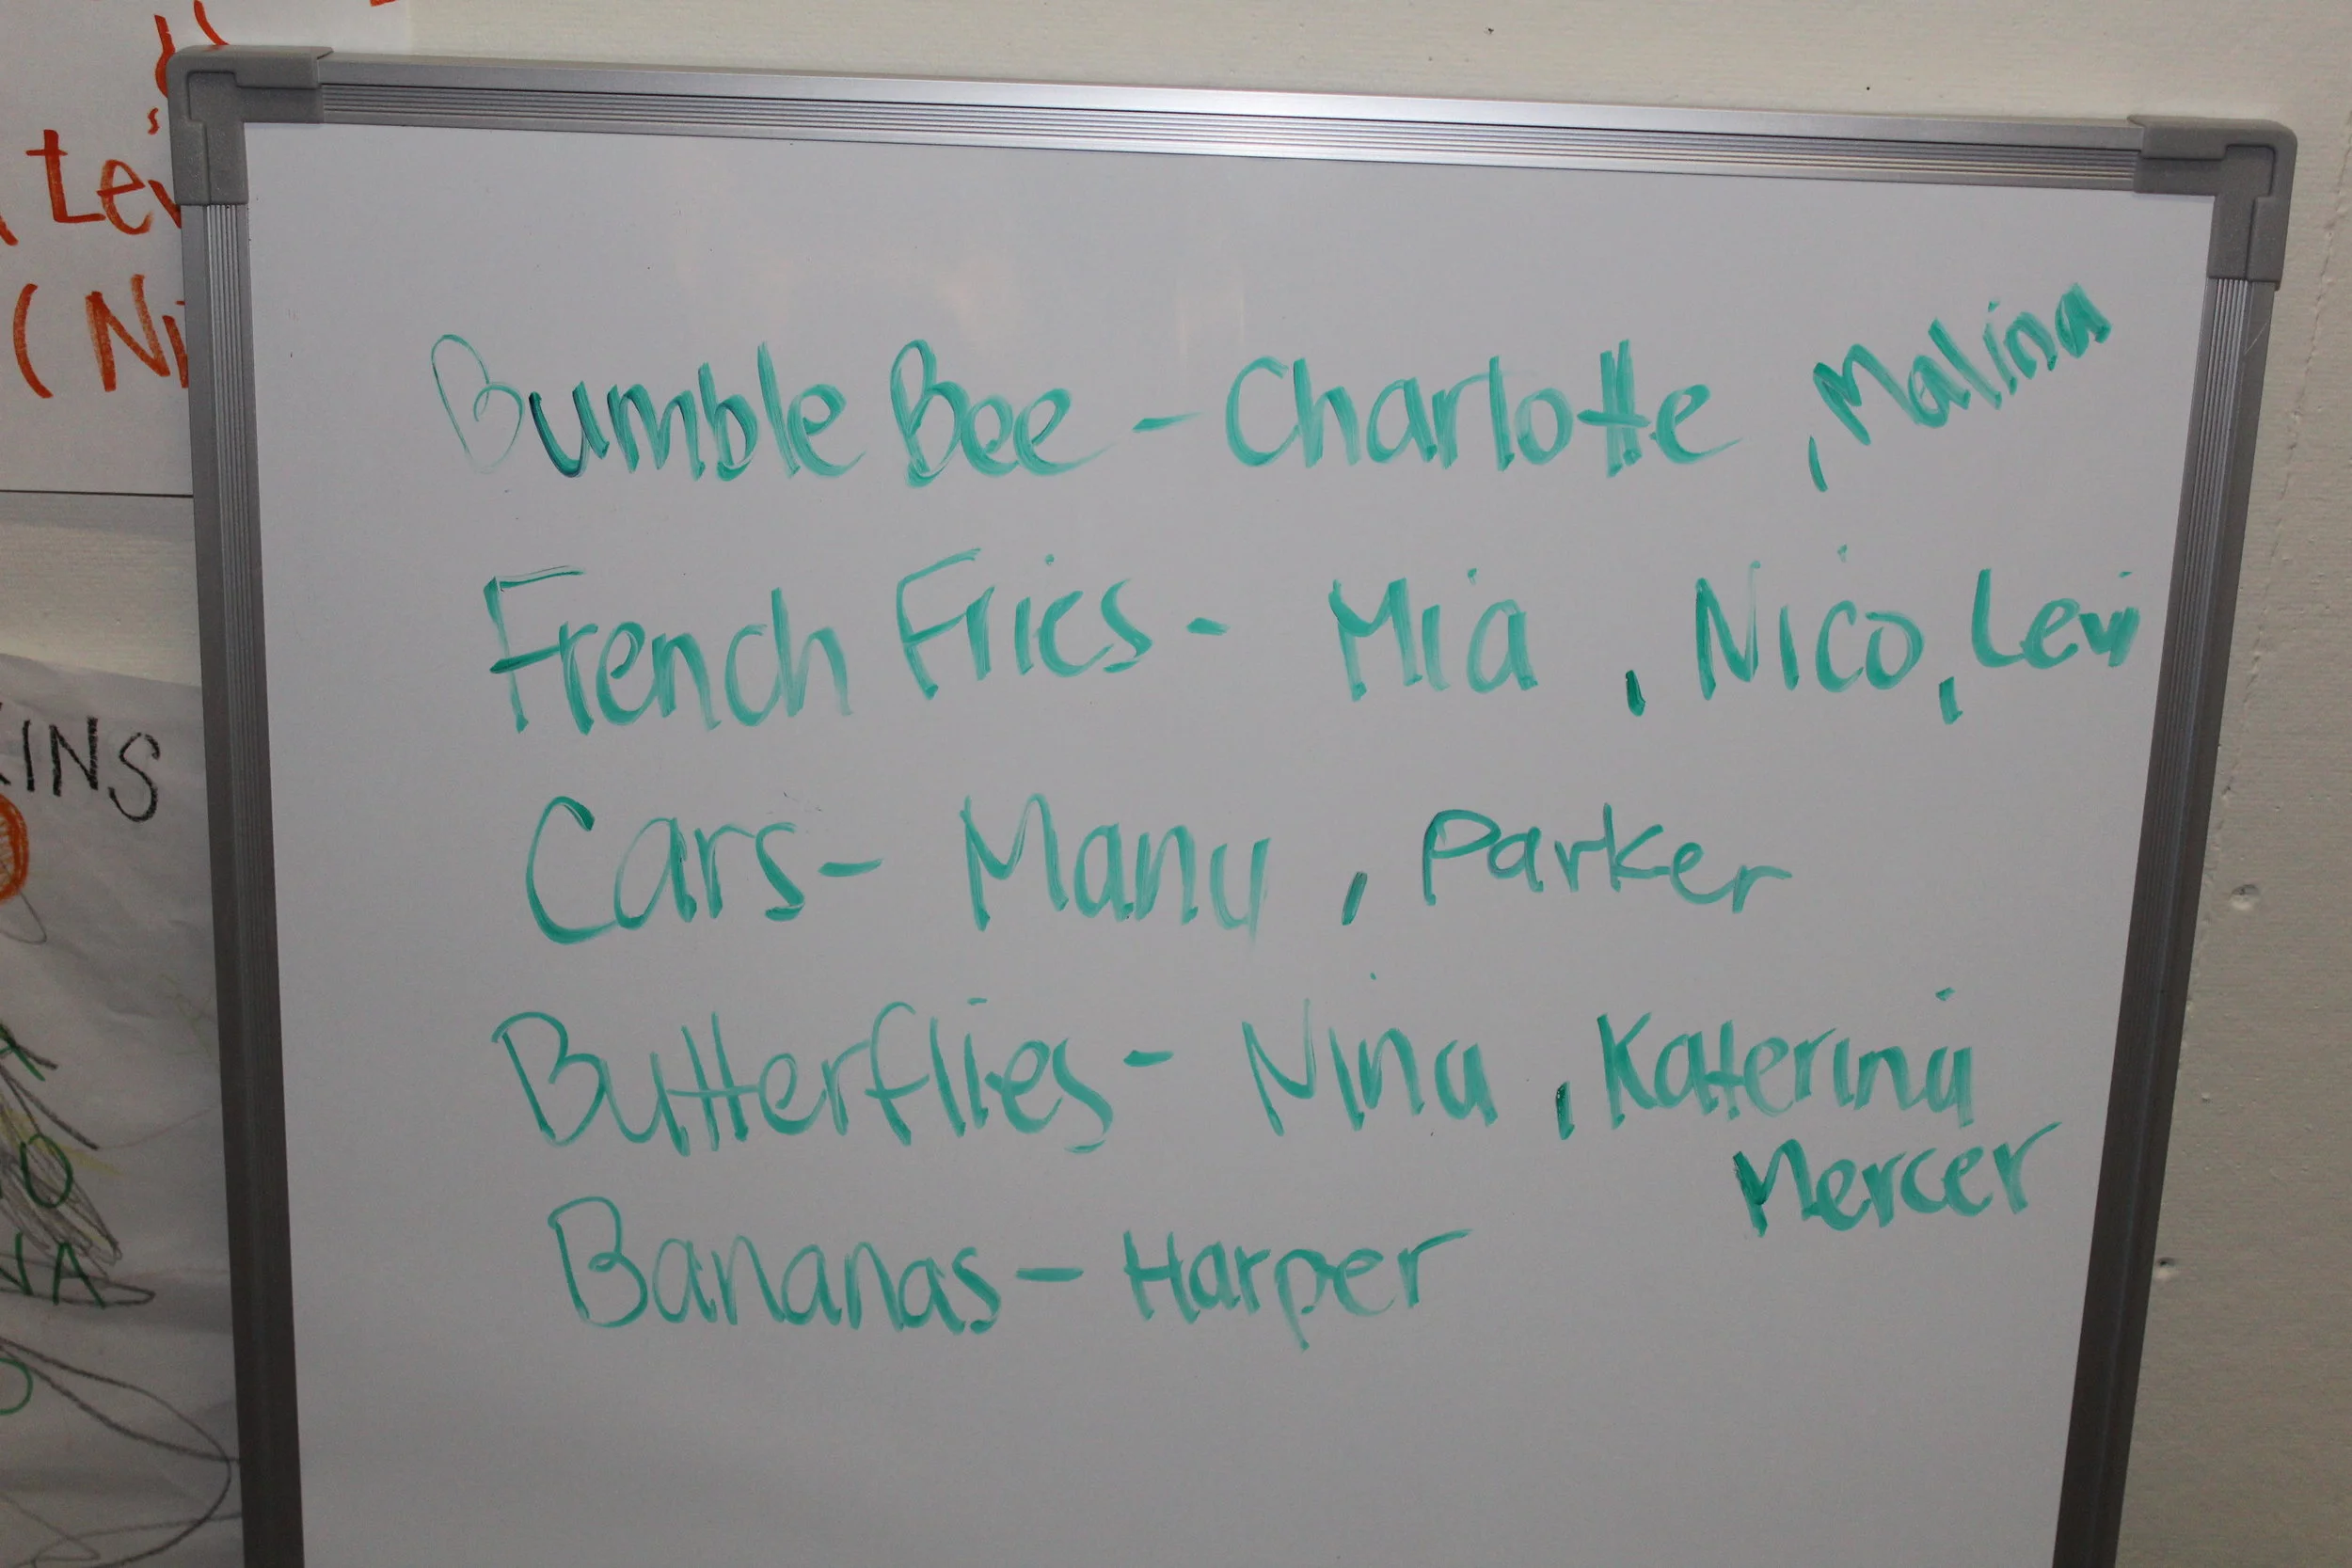 Levi
(Ni
KINS
Bumble Bee - Charlotte , Malina
French Fries - Mia , Nico, Levi
Cars - Manu , Parker
Butterflies - Nina , Katerina
Mercer
Bananas - Harper